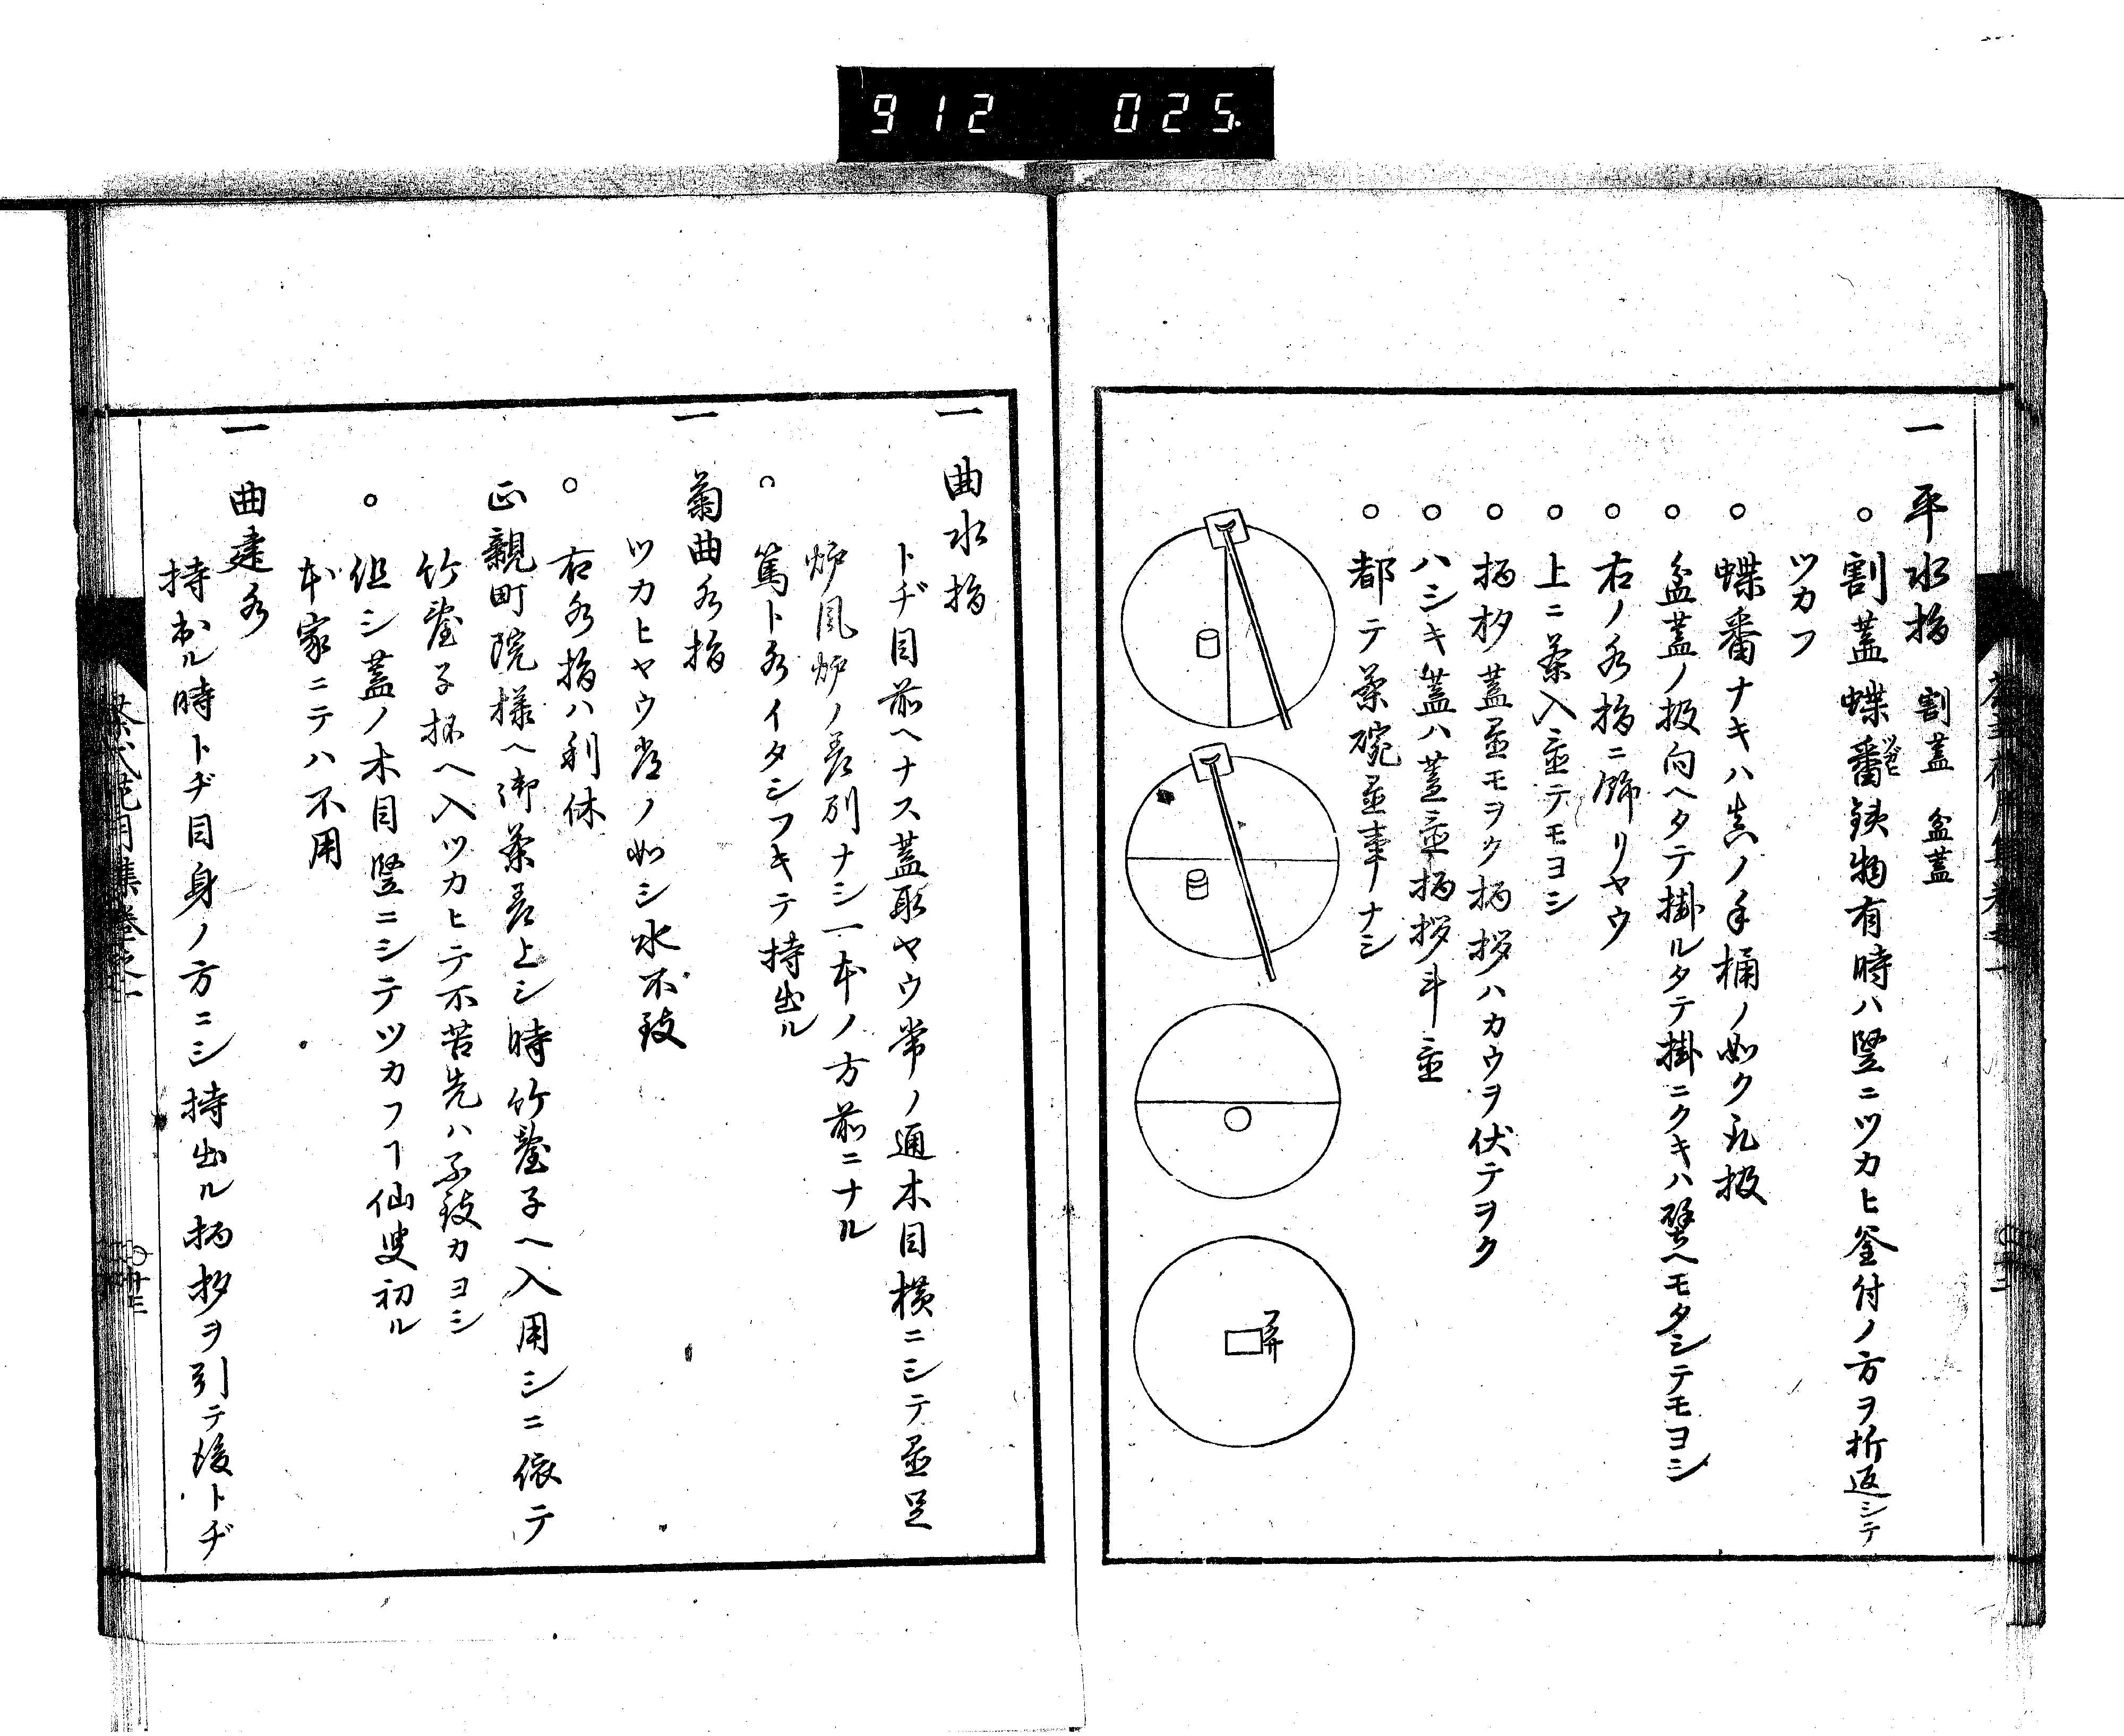 912 025
一 平水指 割蓋 盆蓋
○割蓋蝶番ツガヒ鋏物有時ハ竪ニツカヒ釜付ノ方ヲ折返シテ
ツカフ
○蝶番ナキハ真ノ手桶ノ如ク扱
○盆蓋ノ扱向ヘタテ掛ルタテ掛ニクキハ壁ヘモタシテモヨシ
○右ノ水指ニ餝リヤウ
○上ニ茶入置テモヨシ
○柄杓蓋置モヲク柄杓ハカウヲ伏テヲク
○ハシキ蓋ハ蓋置柄杓斗置
○都テ茶碗置事ナシ
一 曲水指
トヂ目前ヘナス蓋取ヤウ常ノ通木目横ニシテ置足
炉風炉ノ差別ナシ一本ノ方前ニナル
○篤ト水イタシフキテ持出ル
一 菊曲水指
ツカヒヤウ常ノ如シ水不致
○右水指ハ利休
正親町院様ヘ御茶差上シ時竹臺子ヘ入用シニ依テ
竹臺子抔ヘ入ツカヒテ不苦先ハ不致カヨシ
○但シ蓋ノ木目竪ニシテツカフヿ仙叟初ル
本家ニテハ不用
一 曲建水
持出ル時トヂ目身ノ方ニシ持出ル柄杓ヲ引テ後トヂ